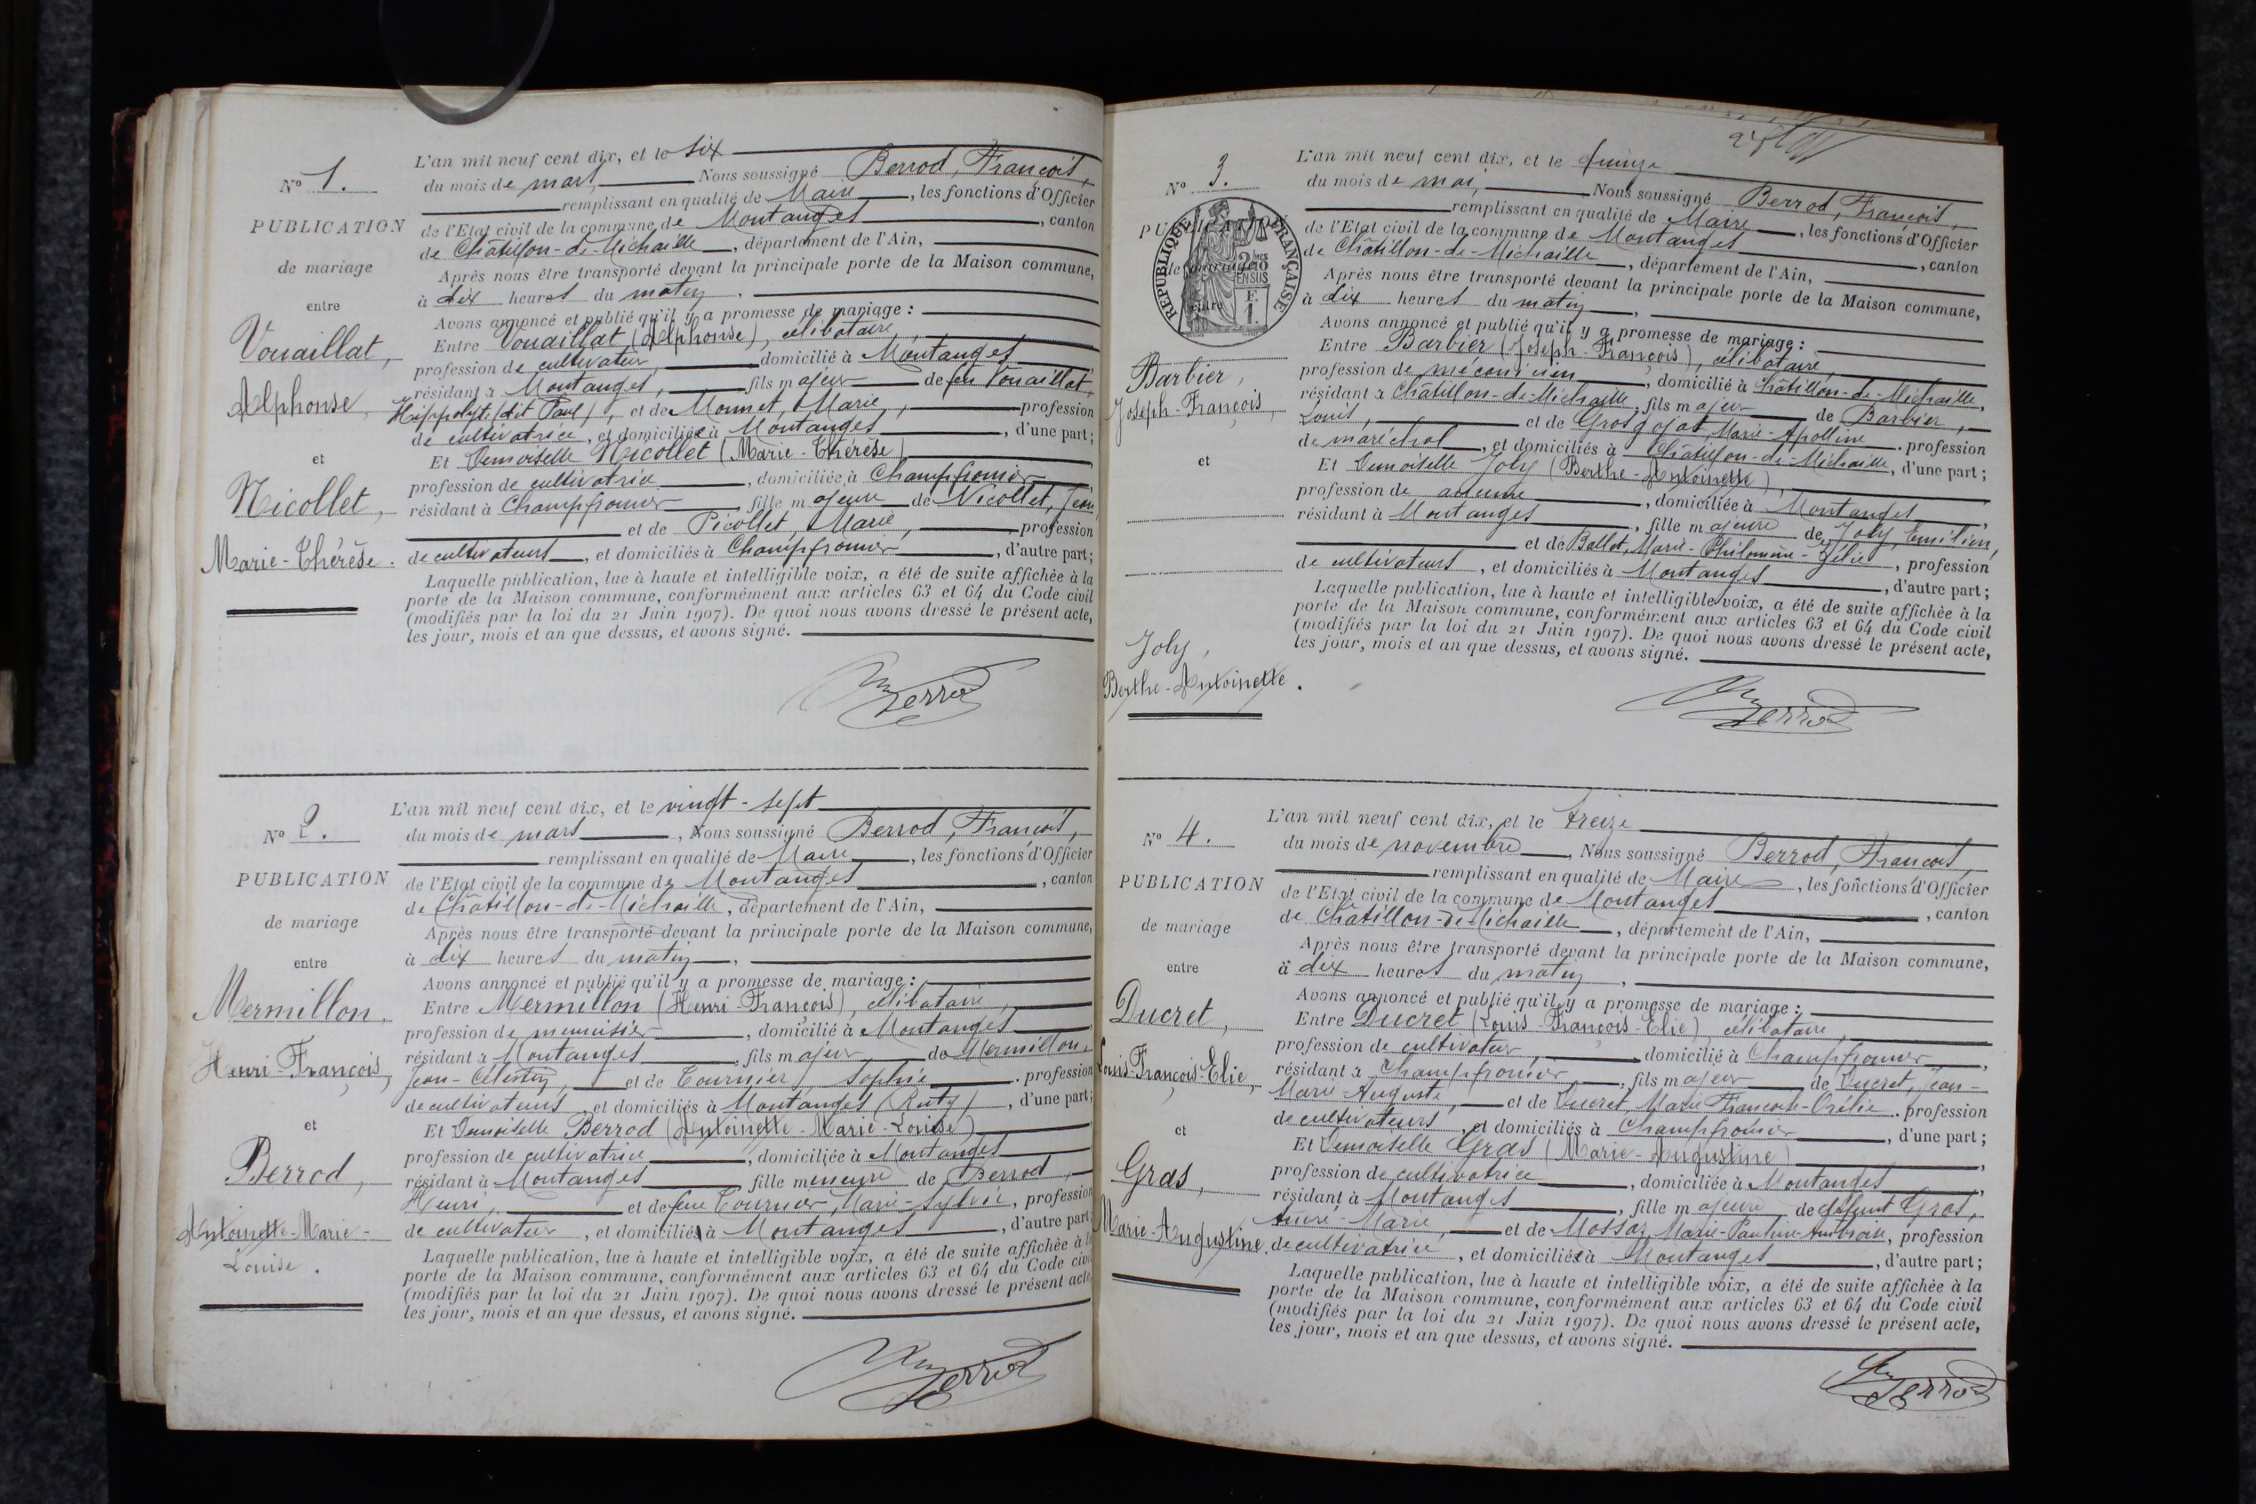 L'an mil neuf cent dix, et le six
N° 1. du mois de mars, Nous soussigné Berrod, François,
remplissant en qualité de Maire, les fonctions d'Officier
PUBLICATION de l'Etat civil de la commune de Montanges, canton
de Châtillon-de-Michaille, département de l'Ain,
de mariage Après nous être transporté devant la principale porte de la Maison commune,
à dix heures du matin.
entre Avons annoncé et publié qu'il y a promesse de mariage :
Vouaillat, Entre Vouaillat (Alphonse), célibataire,
profession de cultivateur, domicilié à Montanges
Alphonse, résidant à Montanges, fils majeur de feu Vouaillat,
Hippolyte (dit Paul), et de Monnet, Marie, profession
de cultivatrice, et domiciliée à Montanges, d'une part ;
et Et Demoiselle Nicollet (Marie-Thérèse)
profession de cultivatrice, domiciliée à Champfromier
Nicollet, résidant à Champfromier fille majeure de Nicollet, Jean,
et de Picollet, Marie, profession
Marie-Thérèse. de cultivateurs, et domiciliés à Champfromier, d'autre part ;
Laquelle publication, lue à haute et intelligible voix, a été de suite affichée à la
porte de la Maison commune, conformément aux articles 63 et 64 du Code civil
(modifiés par la loi du 21 Juin 1907). De quoi nous avons dressé le présent acte,
les jour, mois et an que dessus, et avons signé.
Berrod
L'an mil neuf cent dix, et le vingt-sept
N° 2. du mois de mars, Nous soussigné Berrod, François,
remplissant en qualité de Maire, les fonctions d'Officier
PUBLICATION de l'Etat civil de la commune de Montanges, canton
de Châtillon-de-Michaille, département de l'Ain,
de mariage Après nous être transporté devant la principale porte de la Maison commune,
entre à dix heures du matin.
Avons annoncé et publié qu'il y a promesse de mariage :
Mermillon, Entre Mermillon (Henri-François), célibataire,
profession de menuisier, domicilié à Montanges
Henri-François, résidant à Montanges, fils majeur de Mermillon,
Jean-Célestin, et de Tournier, Sophie. profession
de cultivateurs, et domiciliés à Montanges (Ruty), d'une part ;
et Et Demoiselle Berrod (Antoinette-Marie-Louise)
profession de cultivatrice, domiciliée à Montanges
Berrod, résidant à Montanges fille mineure de Berrod,
Henri, et de feue Tournier, Marie-Sylvie, profession
Antoinette-Marie- de cultivateur, et domicilié à Montanges, d'autre part
Louise. Laquelle publication, lue à haute et intelligible voix, a été de suite affichée à
porte de la Maison commune, conformément aux articles 63 et 64 du Code civil
(modifiés par la loi du 21 Juin 1907). De quoi nous avons dressé le présent acte
les jour, mois et an que dessus, et avons signé.
Berrod
L'an mil neuf cent dix, et le quinze
N° 3. du mois de mai, Nous soussigné Berrod, François,
remplissant en qualité de Maire, les fonctions d'Officier
PUBLICATION de l'Etat civil de la commune de Montanges, canton
RÉPUBLIQUE FRANÇAISE
de Châtillon-de-Michaille, département de l'Ain,
de mariage Après nous être transporté devant la principale porte de la Maison commune,
entre à dix heures du matin,
Avons annoncé et publié qu'il y a promesse de mariage :
Barbier, Entre Barbier (Joseph-François), célibataire,
profession de mécanicien, domicilié à Châtillon-de-Michaille,
Joseph-François, résidant à Châtillon-de-Michaille, fils majeur de Barbier,
Louis, et de Grosgojat, Marie-Apolline. profession
de maréchal, et domiciliés à Châtillon-de-Michaille, d'une part ;
et Et Demoiselle Joly (Berthe-Antoinette),
profession de aucune, domiciliée à Montanges
résidant à Montanges, fille majeure de Joly, Emilien,
et de Ballet, Marie-Philomène-Zélie, profession
de cultivateurs, et domiciliés à Montanges, d'autre part ;
Laquelle publication, lue à haute et intelligible voix, a été de suite affichée à la
porte de la Maison commune, conformément aux articles 63 et 64 du Code civil
(modifiés par la loi du 21 Juin 1907). De quoi nous avons dressé le présent acte,
Joly, les jour, mois et an que dessus, et avons signé.
Berthe-Antoinette.
Berrod
L'an mil neuf cent dix, et le treize
N° 4. du mois de novembre, Nous soussigné Berrod, François,
remplissant en qualité de Maire, les fonctions d'Officier
PUBLICATION de l'Etat civil de la commune de Montanges, canton
de Châtillon-de-Michaille, département de l'Ain,
de mariage Après nous être transporté devant la principale porte de la Maison commune,
entre à dix heures du matin,
Avons annoncé et publié qu'il y a promesse de mariage :
Ducret, Entre Ducret (Louis-François-Elie), célibataire,
profession de cultivateur, domicilié à Champfromier,
Louis-François-Elie, résidant à Champfromier, fils majeur de Ducret, Jean-
Marie-Auguste, et de Ducret, Marie Françoise-Orélie. profession
de cultivateurs, et domiciliés à Champfromier, d'une part ;
et Et Demoiselle Gras (Marie-Augustine)
Gras, profession de cultivatrice, domiciliée à Montanges
résidant à Montanges, fille majeure de défunt Gras,
Aimé-Marie, et de Mossaz, Marie-Pauline-Ambroise, profession
Marie-Augustine. de cultivatrice, et domiciliée à Montanges, d'autre part ;
Laquelle publication, lue à haute et intelligible voix, a été de suite affichée à la
porte de la Maison commune, conformément aux articles 63 et 64 du Code civil
(modifiés par la loi du 21 Juin 1907). De quoi nous avons dressé le présent acte,
les jour, mois et an que dessus, et avons signé.
Berrod